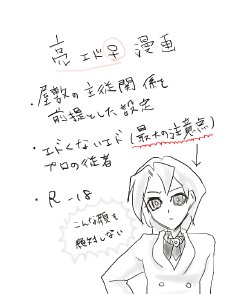 亮エド子漫画
・屋敷の主従関係を
前提とした設定
・エらくないエド(最大の注意点)
プロの従者
・R-18
こんな顔も
絶対しない